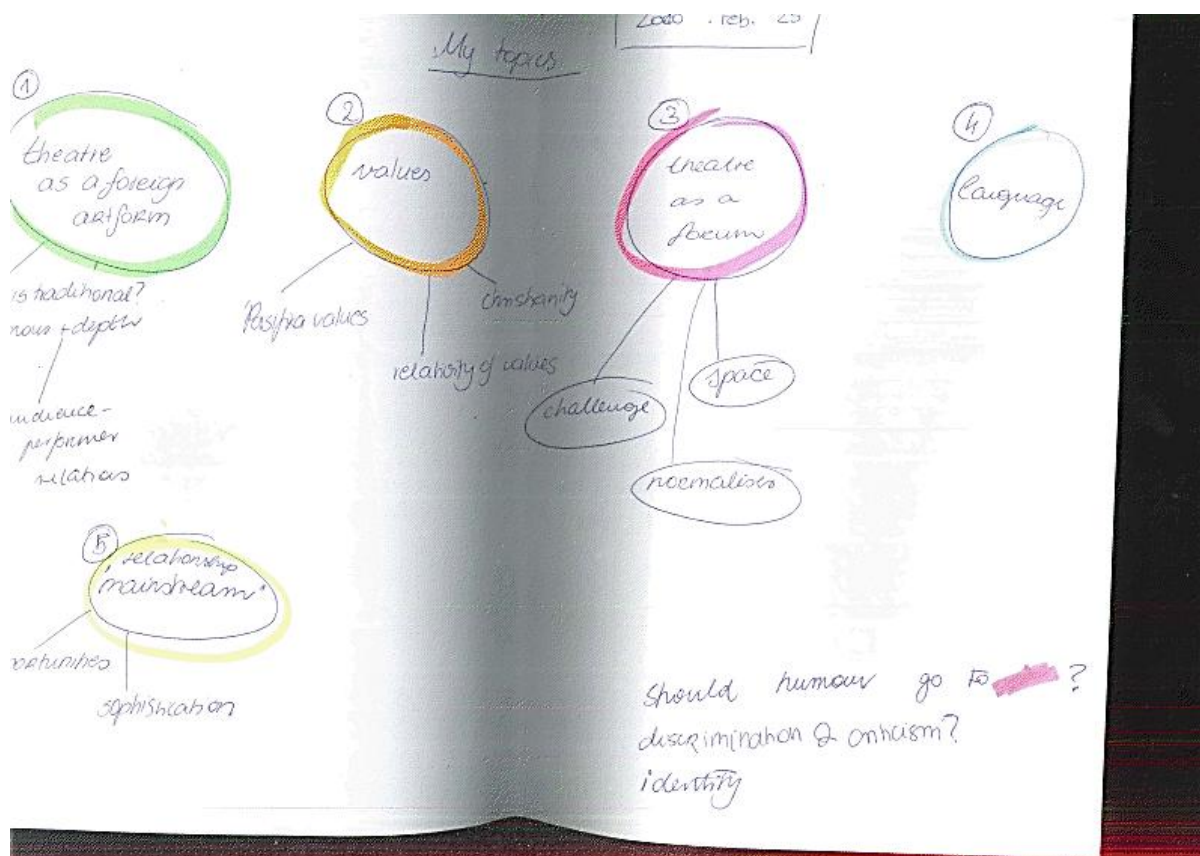 2020 . Feb. 25
My topics
1
theatre
as a foreign
artform
is traditional?
+ depth
audience-
performer
relations
2
values
Pasifika values
relativity of values
Christianity
3
theatre
as a
forum
challenge
normalises
space
4
language
5
relationship
"mainstream"
sophistication
should humour go to ?
discrimination & criticism?
identity